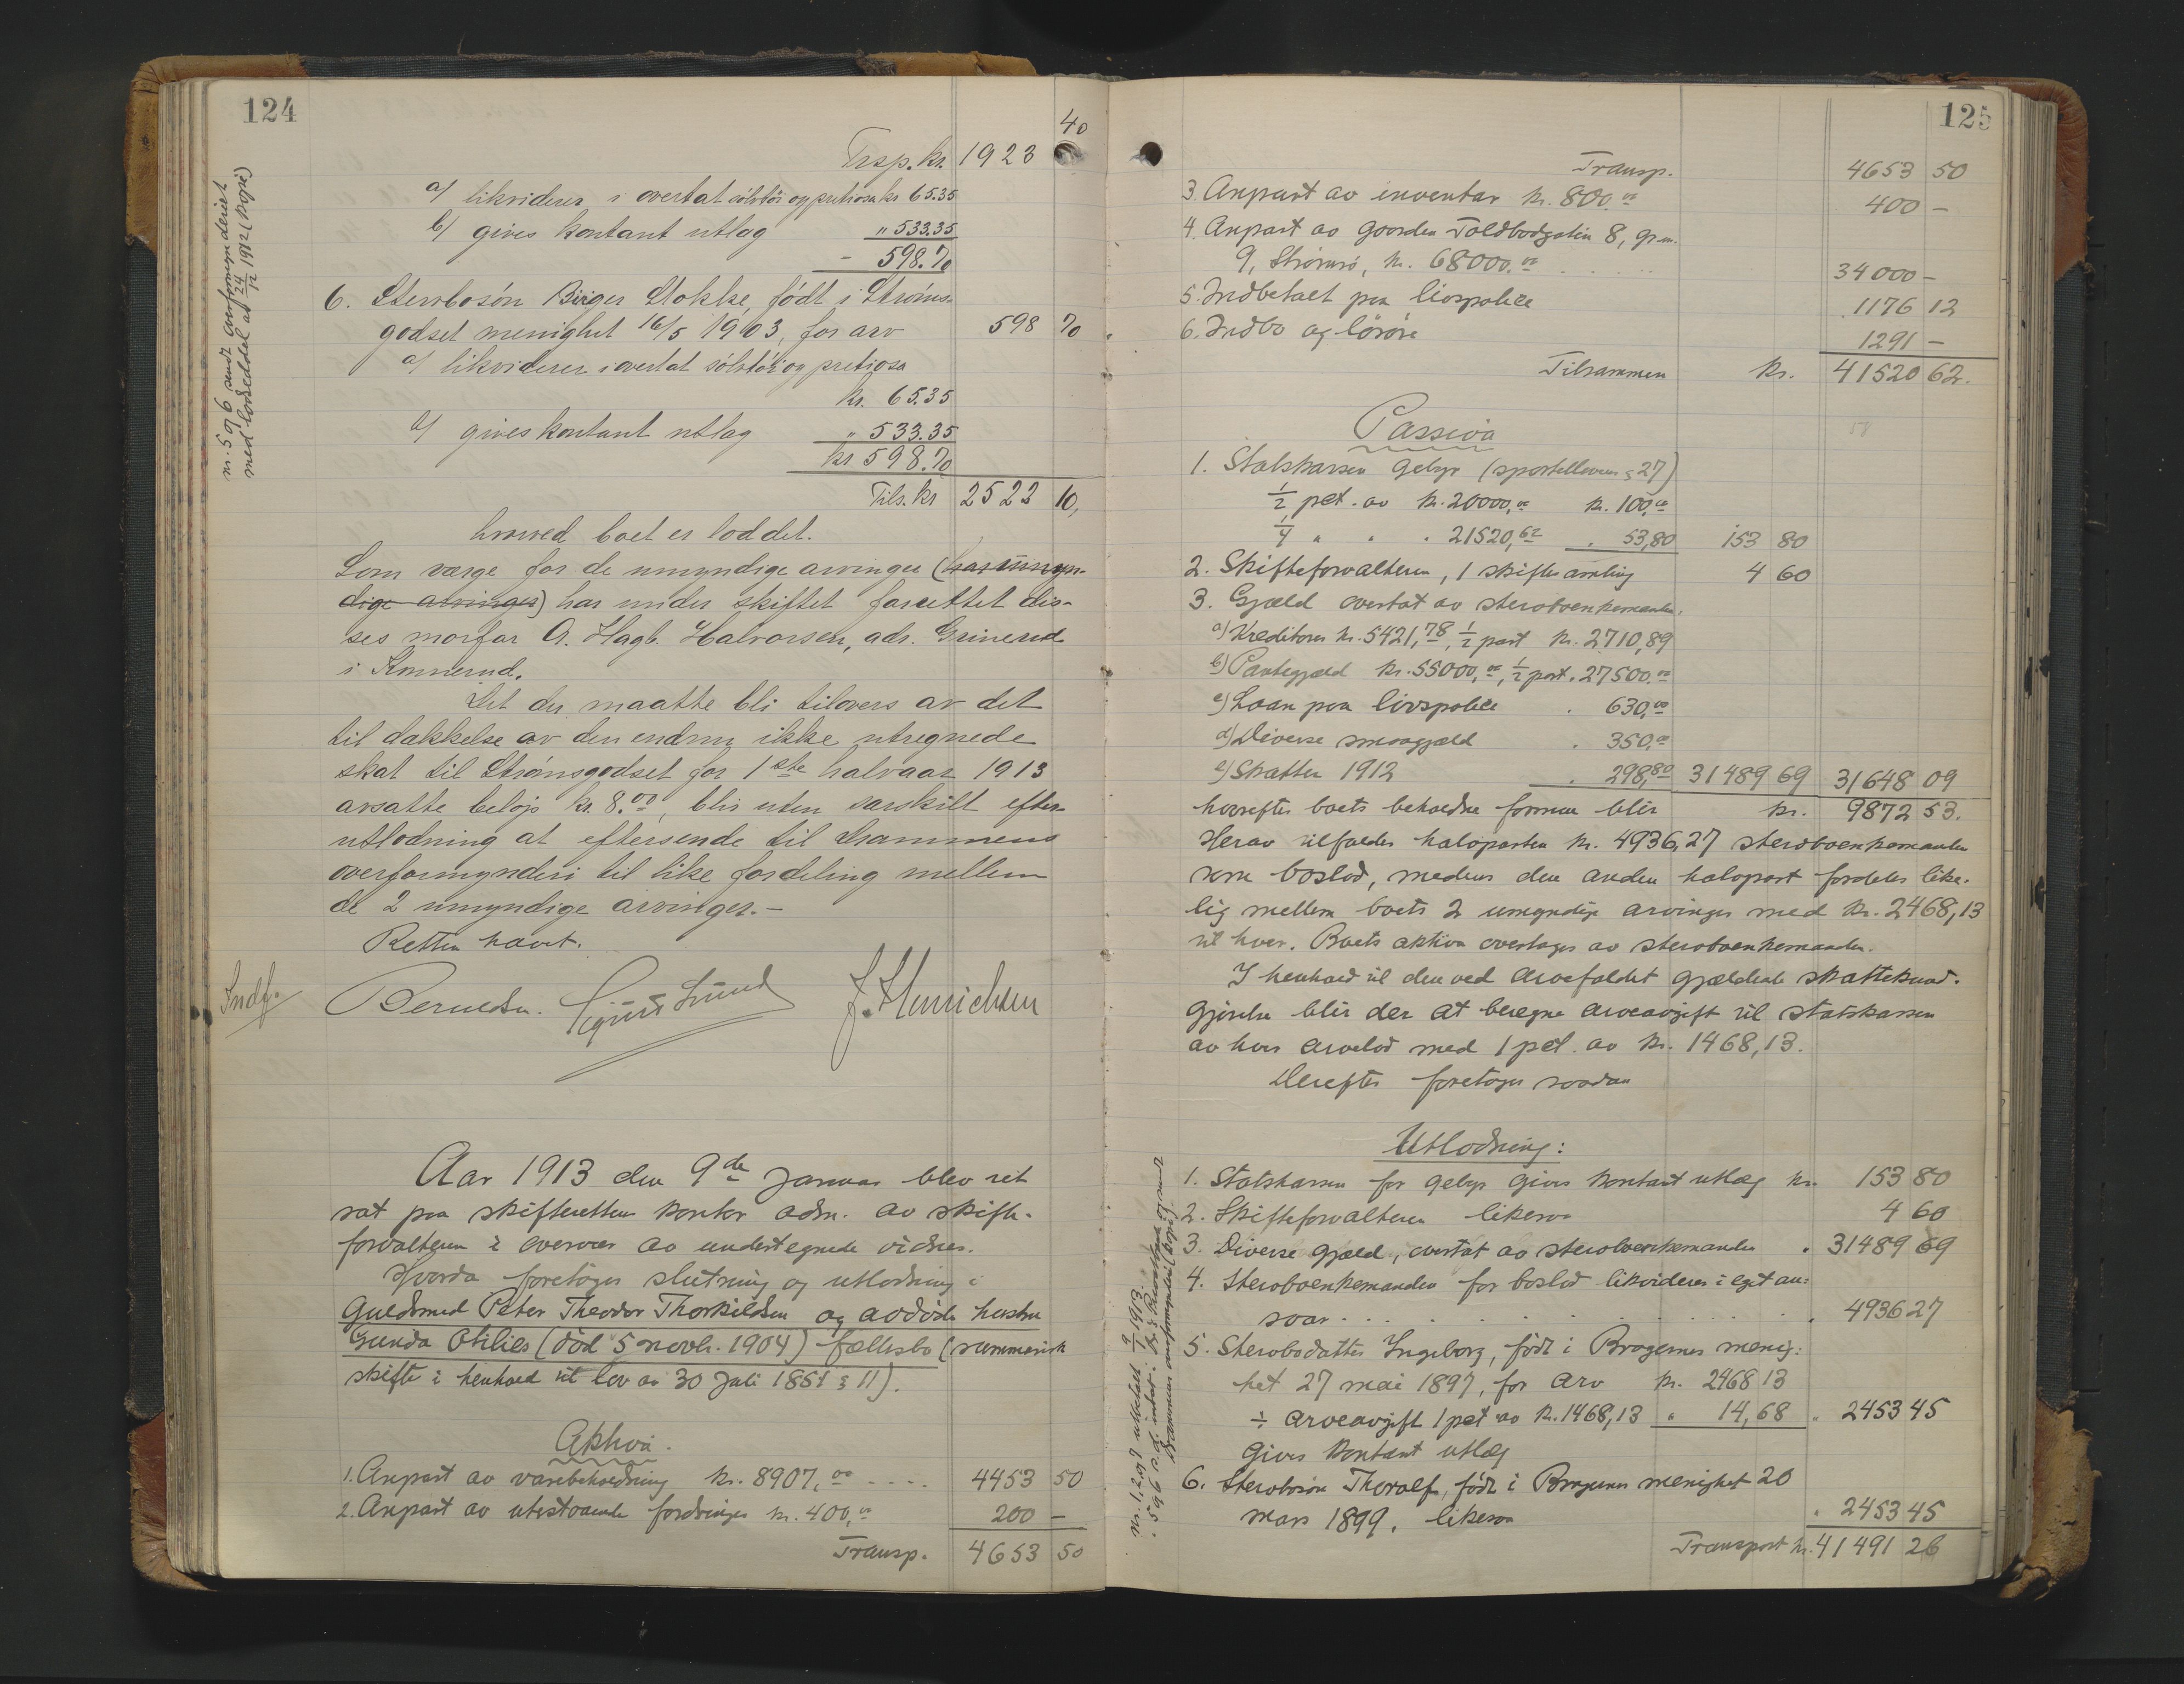 124
nr. 5 og 6 sendt overformynderiet
med lodseddel av 24/12 1912 (Kopi)
40
Trsp. kr. 1923
a/ likvideres i overtat sölvtöi og pretiosa kr 65.35
b/ gives kontant utlæg " 533.35
- 598.70
6. Stervbosön Birger Stokke, födt i Ströms-
godset menighet 16/5 1903, for arv 598 70
a/ likvideres i overtat sölvtöi og pretiosa
kr. 65.35
b/ gives kontant utlæg " 533.35
kr 598.70
Tils. kr 2522 10,
hvorved boet er loddet.
Som værge for de umyndige arvinger (har umyn-
dige arvinger) har under skiftet forrettet dis-
ses morfar A. Hagb. Halvorsen, adr. Grinerud
i Konnerud.
Det der maatte bli tilovers av det
til dækkelse av den endnu ikke utregnede
skat til Strömsgodset for 1ste halvaar 1913
avsatte belöp kr. 8.00, blir uten særskilt efter-
utlodning at eftersende til Drammens
overformynderi til like fordeling mellem
de 2 umyndige arvinger.-
Retten hævet.
Indf. Berntsen. Sigurd Lund J. Henrichsen
Aar 1913 den 9de Januar blev ret
sat paa skifteretten kontor adm. av skifte-
forvalteren i overvær av undertegnede vidner.
Hvorda foretoges slutning og utlodning i
Guldsmed Peter Theodor Thorkildsen og avdöde hustru
Gunda Otilies (död 5 novbr. 1904) fællesbo (summarisk
skifte i henhold til lov av 30 Juli 1851 § 11).
Aktiva.
1. Anpart av varebeholdning kr. 8907,00 - - - 4453 50
2. Anpart av utestaaende fordringer kr. 400,00 200 -
Transp. 4653 50
125
Transp. 4653 50
3. Anpart av inventar kr. 800.00 400 -
4. Anpart av gaarden Toldbodgaten 8, gr.nr.
9, Strömsö, kr. 68000.00 34000 -
5. Indbetalt paa livspolice 1176 12
6. Indbo og lösöre 1291 -
Tilsammen kr. 41520 62.
Passiva
1. Statskassen gebyr (sportelloven § 27)
1/2 pct. av kr. 20000,00 kr. 100,00
1/4 " " " 21520,62 . 53,80 153 80
2. Skifteforvalteren, 1 skiftesamling 4 60
3. Gjæld overtat av stervboenkemanden:
a) Kreditorer kr. 5421,78, 1/2 part kr. 2710,89
b) Pantegjæld kr. 55000,00, 1/2 part . 27500.00
c) Laan paa livspolice . 630,00
d) Diverse smaagjæld . 350,00
e) Skatter 1912 . 298,80 31489 69 31648 09
hvorefter boets beholdne formue blir kr. 9872 53.
Herav tilfalder halvparten kr. 4936,27 stervboenkemanden
som boslod, medens den anden halvpart fordeles like-
lig mellem boets 2 umyndige arvinger med kr. 2468,13
til hver. Boets aktiva overtages av stervboenkemanden.
I henhold til den ved arvefaldet gjældende skattekund-
gjörelse blir der at beregne arveavgift til statskassen
av hver arvelod med 1 pct. av kr. 1468,13.
Derefter foretages saadan
Utlodning:
nr. 1, 2 og utbetalt 9/1 1913.
Drammens overformynderi (kopi)
1. Statskassen for gebyr gives kontant utlæg kr. 153 80
2. Skifteforvalteren likesaa 4 60
3. Diverse gjæld, overtat av stervboenkemanden . 31489 69
4. Stervboenkemanden for boslod likvideres i eget an-
svar . . . . . 4936 27
5. Stervbodatter Ingeborg, födt i Bragernes menig-
het 27 mai 1897, for arv kr. 2468 13
÷ arveavgift 1 pct av kr. 1468,13 " 14,68 . 2453 45
gives kontant utlæg
6. Stervbosön Thoralf, födt i Bragernes menighet 20
mars 1899. likesaa . 2453 45
Transport kr. 41491 26